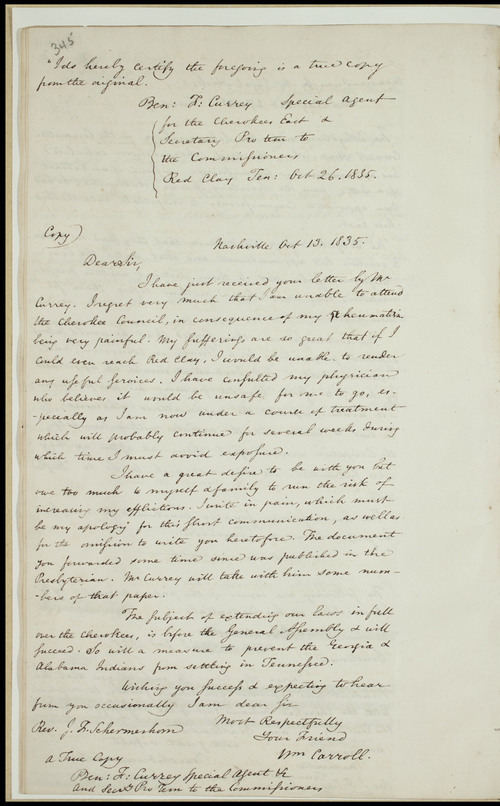 345
"I do hereby certify the foregoing is a true copy
from the original.
Ben: F: Currey Special Agent
for the Cherokees East &
Secretary Pro tem to
the Commissioners
Red Clay Ten: Oct 26. 1835.
Copy)
Nashville Oct 13. 1835.
Dear Sir,
I have just received your letter by Mr
Currey. I regret very much that I am unable to attend
the Cherokee Council, in consequence of my Rheumatism
being very painful. My sufferings are so great that if I
could even reach Red Clay, I would be unable to render
any useful services. I have consulted my physician
who believes it would be unsafe for me to go, es-
-pecially as I am now under a course of treatment
which will probably continue for several weeks during
which time I must avoid exposure.
I have a great desire to be with you but
owe too much to myself & family to run the risk of
increasing my afflictions. I write in pain, which must
be my apology for this short communication, as well as
for the omission to write you heretofore. The document
you forwarded some time since was published in the
Presbyterian. Mr Currey will take with him some num-
-bers of that paper.
The subject of extending our laws in full
over the Cherokees, is before the General Assembly & will
succeed. So will a measure to prevent the Georgia &
Alabama Indians from settling in Tennessee.
Wishing you success & expecting to hear
from you occasionally I am dear Sir
Most Respectfully
Rev. J. F. Schermerhorn
Your Friend
Wm Carroll.
A True Copy
Ben: F: Currey Special Agent &c
and Secy Pro Tem to the Commissioners